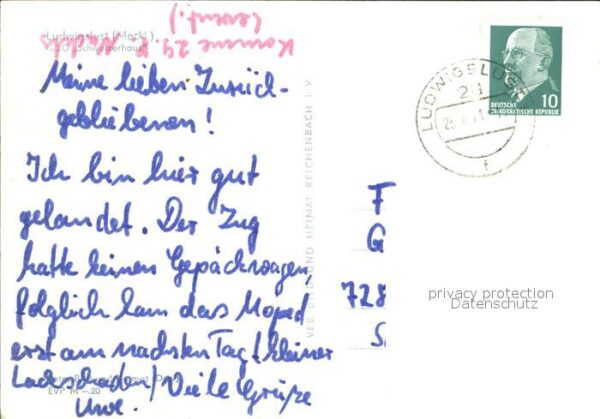 Komme 29. 8. Nachts
(event.)
Ludwigslust (Meckl.)
HOG "Schweizerhaus"
Meine lieben Zurück-
gebliebenen!
Ich bin hier gut
gelandet. Der Zug
hatte keinen Gepäckwagen,
folglich kam das Moped
erst am nächsten Tag (kleiner
Lackschaden) Viele Grüße
Uwe.
EVP M -.20
VEB BILD UND HEIMAT REICHENBACH I. V.
LUDWIGSLUST
DEUTSCHE
DEMOKRATISCHE REPUBLIK
10
F
G
728
S
privacy protection
Datenschutz